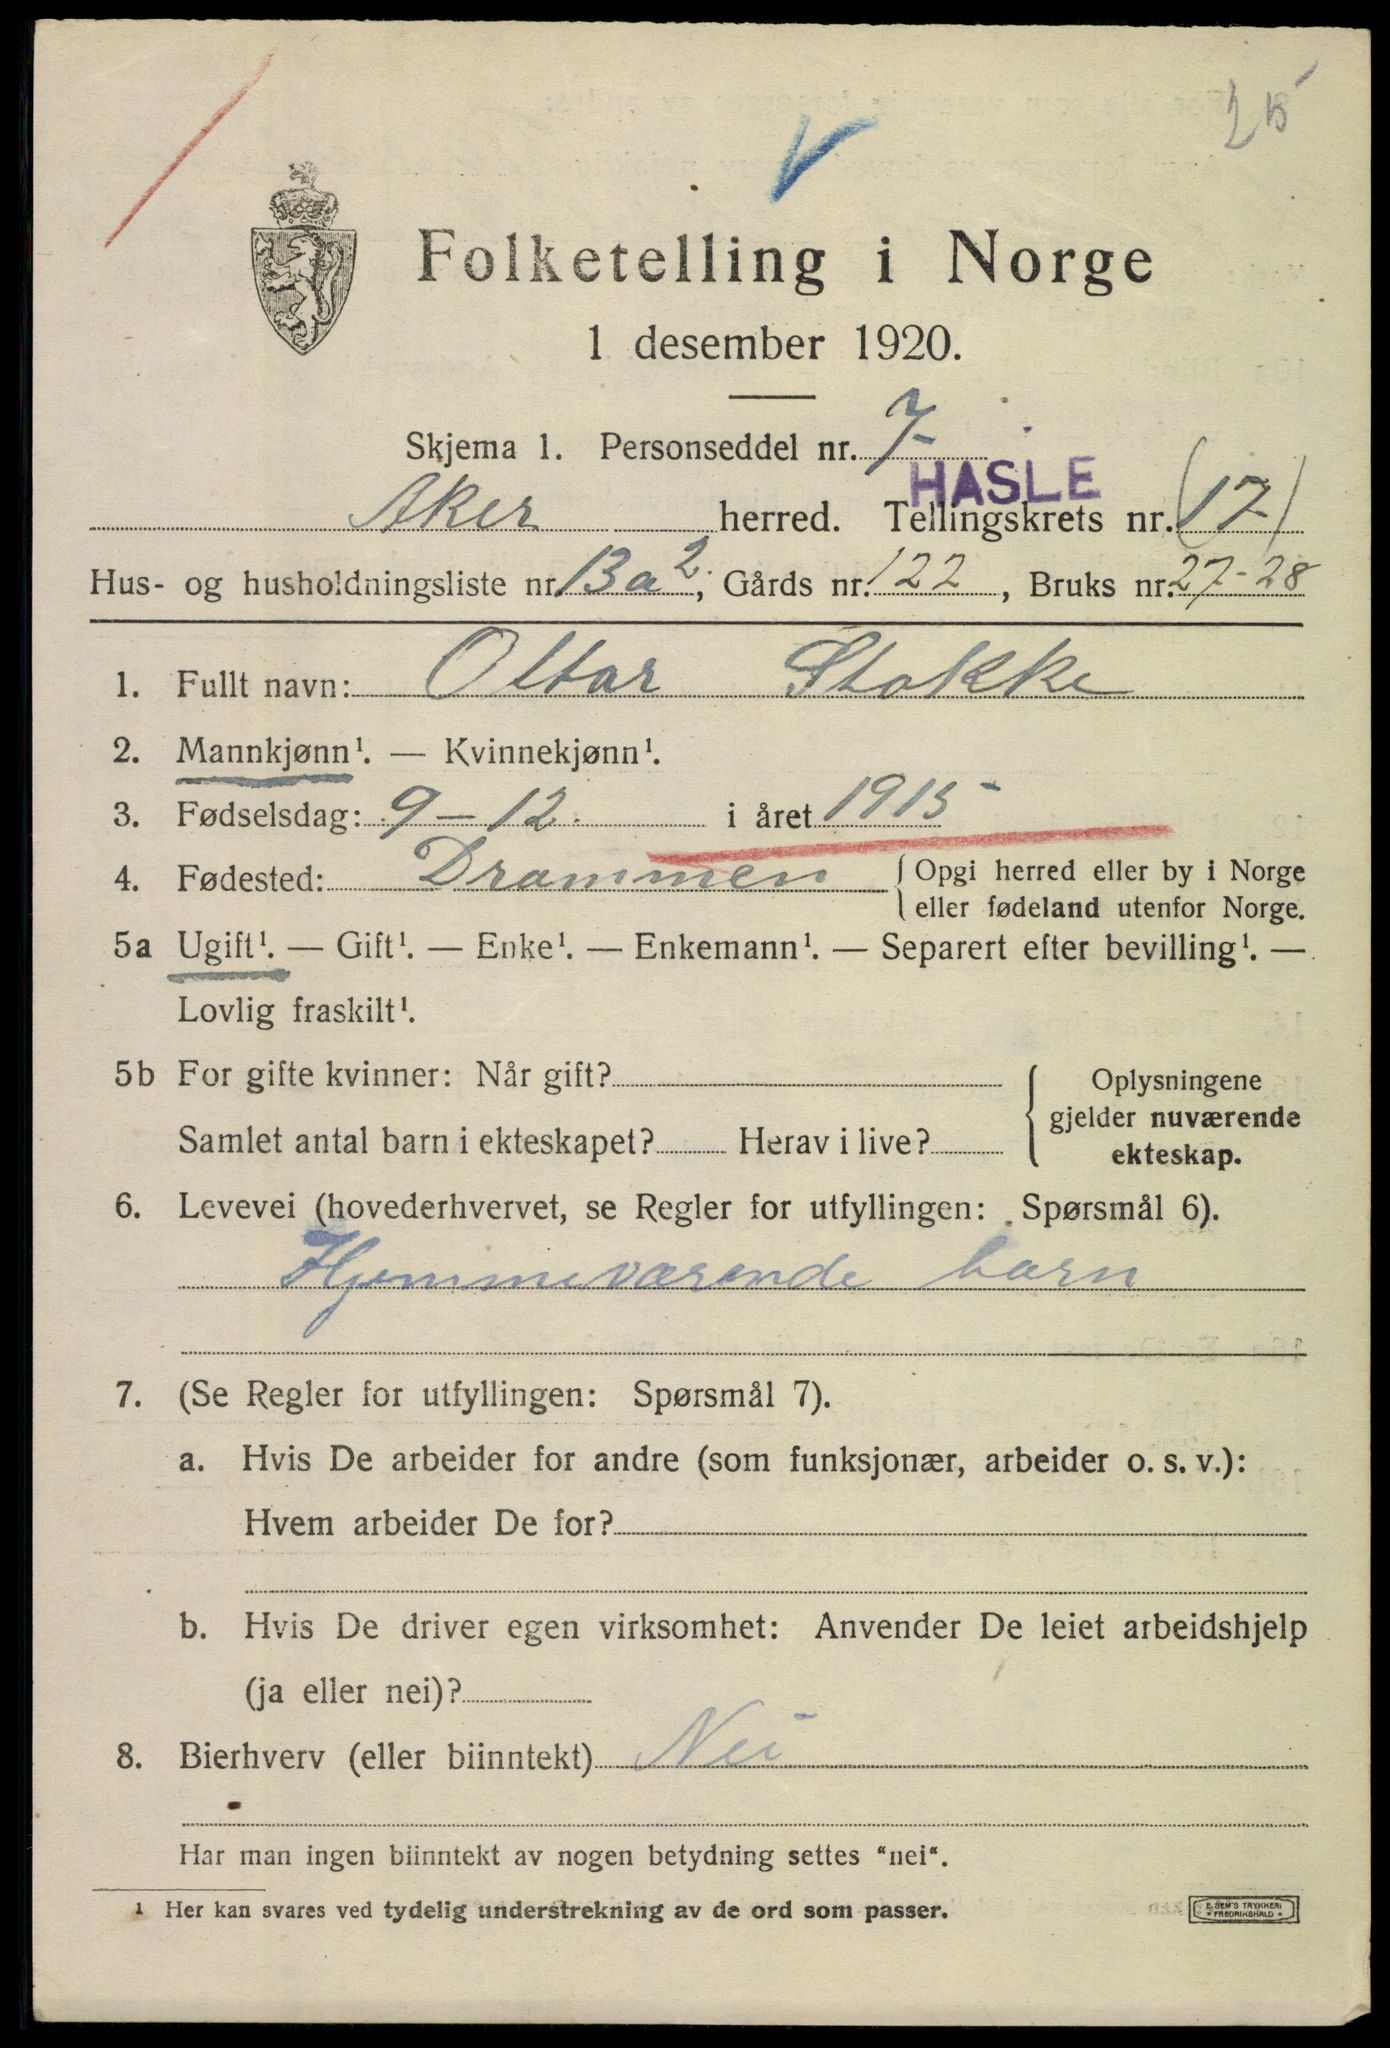 25
Folketelling i Norge
1 desember 1920.
Skjema 1. Personseddel nr. 7
HASLE
Aker herred. Tellingskrets nr. (17)
Hus- og husholdningsliste nr. 13a2, Gårds nr. 122, Bruks nr. 27-28
1. Fullt navn: Ottar Stokke
2. Mannkjønn¹. — Kvinnekjønn¹.
3. Fødselsdag: 9-12 i året 1915
4. Fødested: Drammen { Opgi herred eller by i Norge
eller fødeland utenfor Norge.
5a Ugift¹. — Gift¹. — Enke¹. — Enkemann¹. — Separert efter bevilling¹. —
Lovlig fraskilt¹.
5b For gifte kvinner: Når gift?
Samlet antal barn i ekteskapet? Herav i live?
Oplysningene
gjelder nuværende
ekteskap.
6. Levevei (hovederhvervet, se Regler for utfyllingen: Spørsmål 6).
Hjemmeværende barn
7. (Se Regler for utfyllingen: Spørsmål 7).
a. Hvis De arbeider for andre (som funksjonær, arbeider o. s. v.):
Hvem arbeider De for?
b. Hvis De driver egen virksomhet: Anvender De leiet arbeidshjelp
(ja eller nei)?
8. Bierhverv (eller biinntekt) Nei
Har man ingen biinntekt av nogen betydning settes "nei".
¹ Her kan svares ved tydelig understrekning av de ord som passer.
E. SEM'S TRYKKERI
FREDRIKSHALD